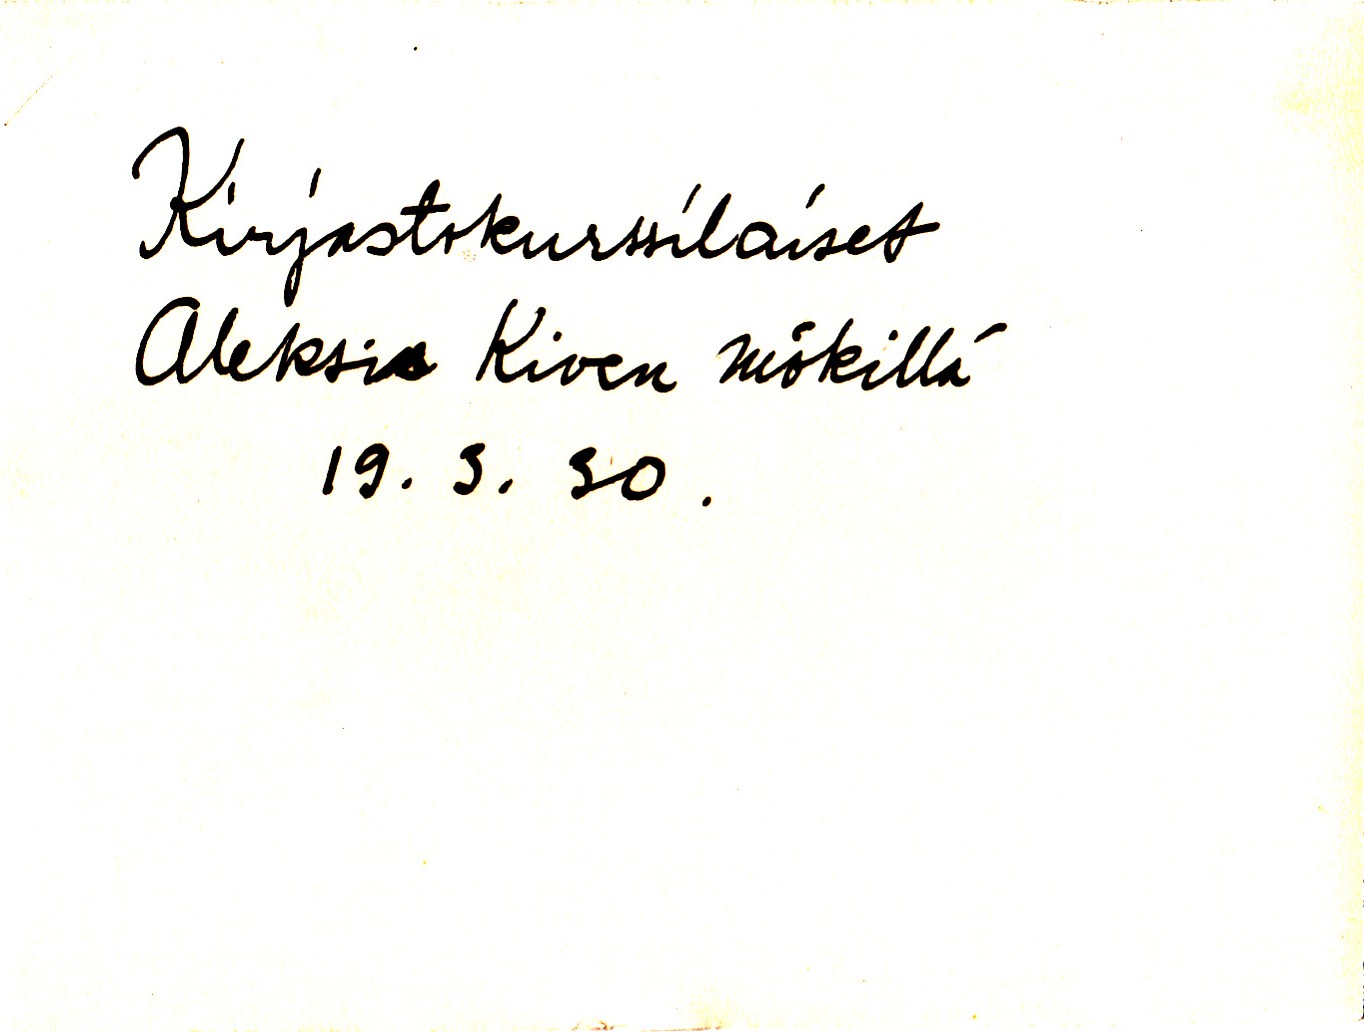 Kirjastokurssilaiset
Aleksis Kiven mökillä
19. 3. 30.